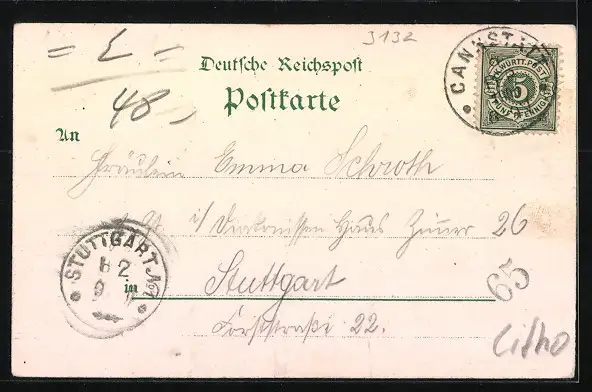 3132
= L =
48,
Deutsche Reichspost
Postkarte
CANNSTATT
K. WÜRTT. POST
5
FÜNF PFENNIG
An
Fräulein Emma Schroth
i/ Diakonissen Haus Zimmer 26
STUTTGART No
in Stuttgart
65
Forststraße 22.
Litho